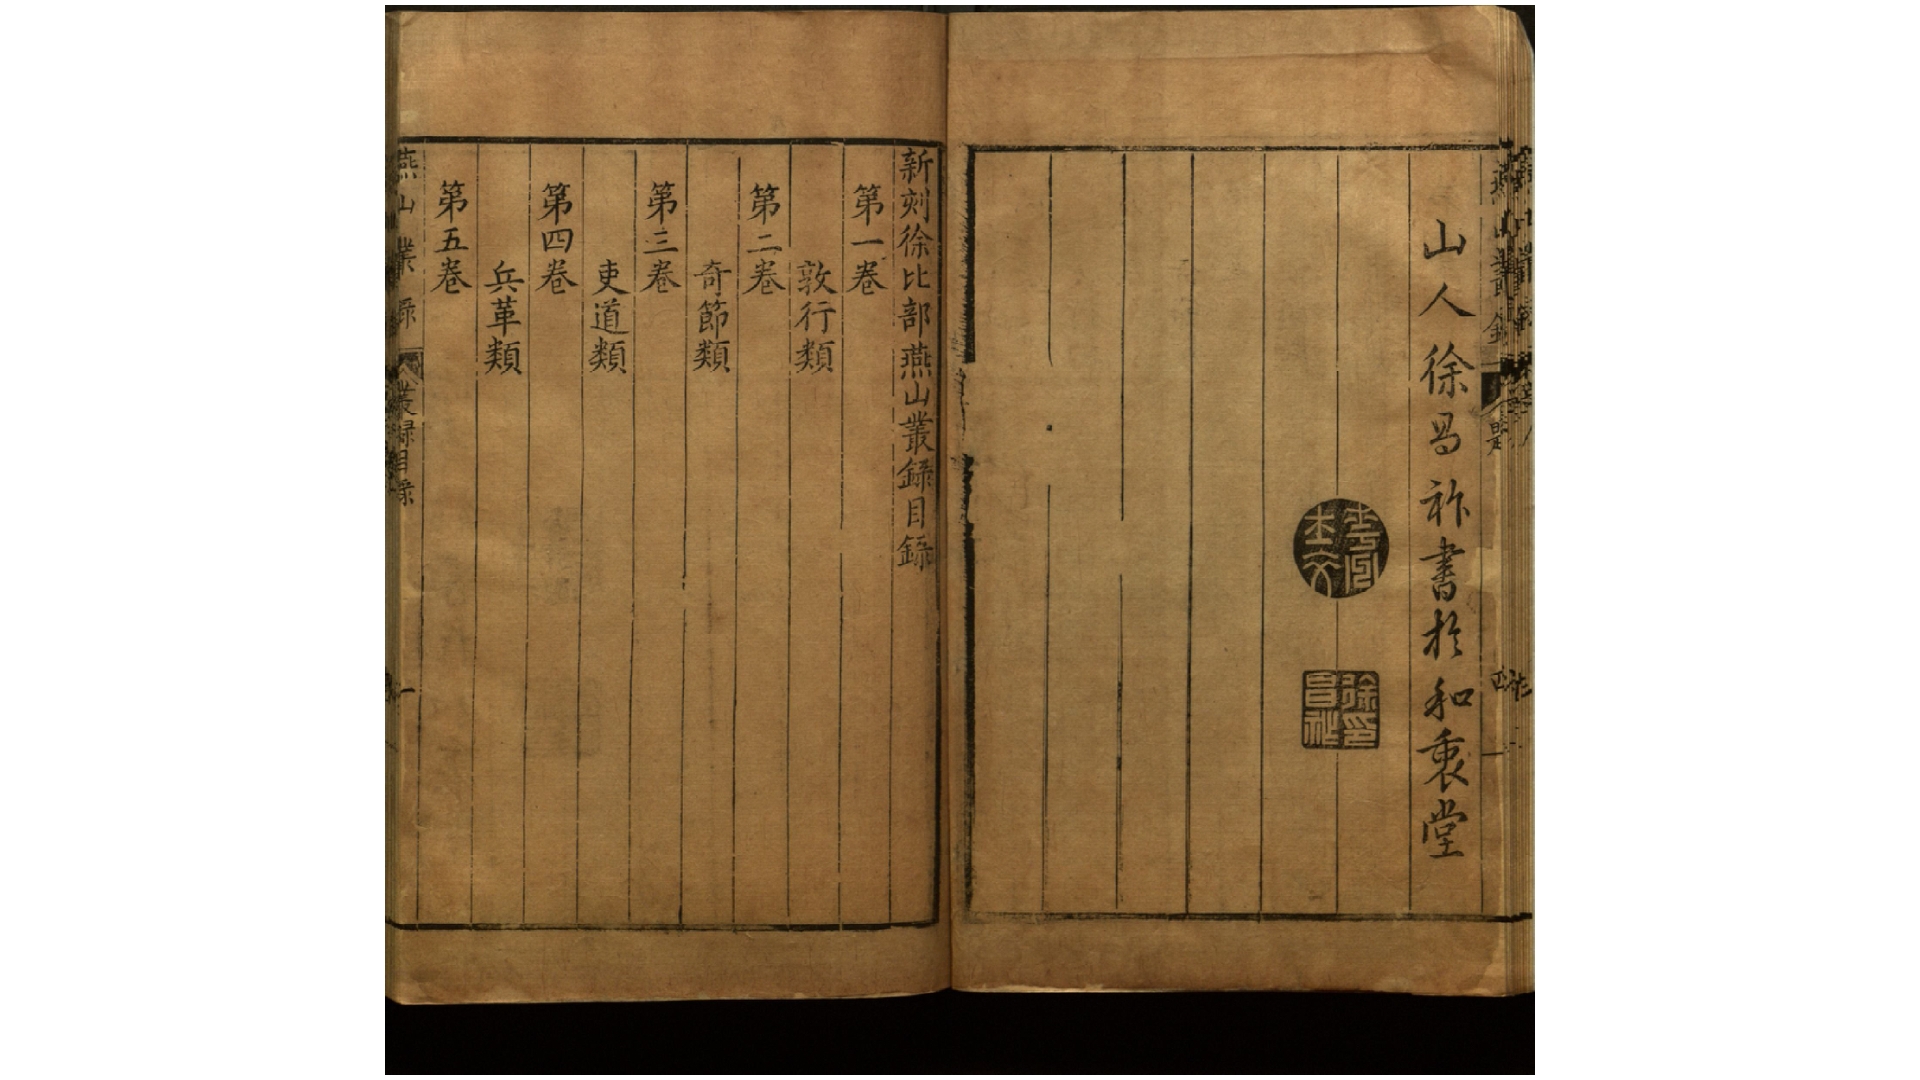 山人徐昌祚書於和衷堂
徐印昌祚
新刻徐比部燕山叢錄目錄
第一卷
敦行類
第二卷
奇節類
第三卷
吏道類
第四卷
兵革類
第五卷
燕山叢錄
叢錄目錄
一